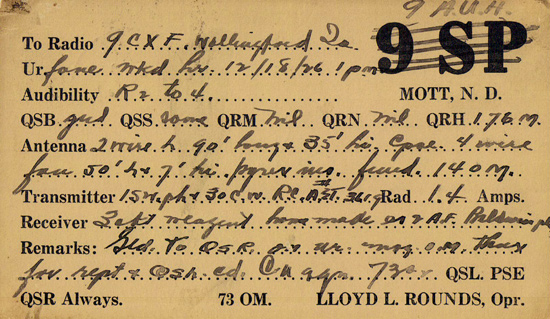 9 AUH
To Radio 9CXF. Wallingford Ia
9 SP
Ur fone wkd hr. 12/18/26 1 pm
Audibility R2 to 4.
MOTT, N. D.
QSB gud QSS some QRM nil QRN nil QRH 176 M.
Antenna 2 wire h 90' long & 35' hi, Cpse 4 wire
fan 50' h & 7' hi. pyrex ins. fund. 140 M.
Transmitter 15w. ph & 30 C.W. Rad 1.4 Amps.
Receiver home made Baldwin
Remarks: Gld to QSR ur msg O.M. thanx
for rept & QSL cd. Cu agn 73s QSL. PSE
QSR Always. 73 OM. LLOYD L. ROUNDS, Opr.